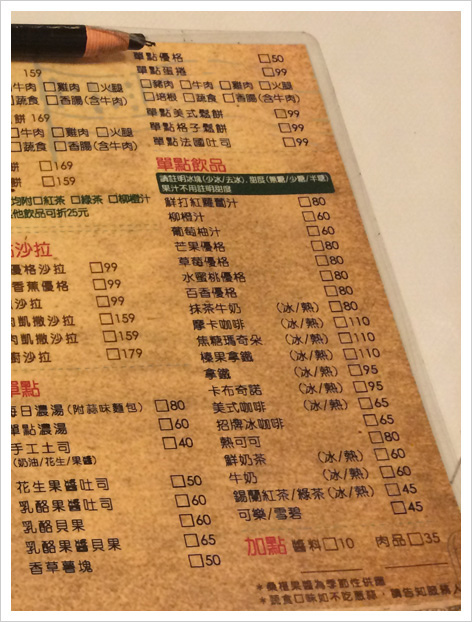 159
牛肉 □雞肉 □火腿
蔬食 □香腸(含牛肉)
餅 169
□牛肉 □雞肉 □火腿
□蔬食 □香腸(含牛肉)
□169
餅 □159
均附□紅茶 □綠茶 □柳橙汁
其他飲品可折25元
沙拉
優格沙拉 □99
香蕉優格 □99
沙拉 □99
肉凱撒沙拉 □159
肉凱撒沙拉 □159
沙拉 □179
單點
每日濃湯(附蒜味麵包) □80
單點濃湯 □60
手工土司 □40
(奶油/花生/果醬)
花生果醬吐司 □50
乳酪果醬吐司 □60
乳酪貝果 □60
乳酪果醬貝果 □65
香草薯塊 □50
單點優格 □50
單點蛋捲 □99
□豬肉 □牛肉 □雞肉 □火腿
□培根 □蔬食 □香腸(含牛肉)
單點美式鬆餅 □99
單點格子鬆餅 □99
單點法國吐司 □99
單點飲品
請註明冰塊(少冰/去冰)、甜度(無糖/少糖/半糖)
果汁不用註明甜度
鮮打紅蘿蔔汁 □80
柳橙汁 □60
葡萄柚汁 □60
芒果優格 □80
草莓優格 □80
水蜜桃優格 □80
百香優格 □80
抹茶牛奶 (冰/熱) □80
摩卡咖啡 (冰/熱) □110
焦糖瑪奇朵 (冰/熱) □110
榛果拿鐵 (冰/熱) □110
拿鐵 (冰/熱) □95
卡布奇諾 (冰/熱) □95
美式咖啡 (冰/熱) □65
招牌冰咖啡 □65
熱可可 □80
鮮奶茶 (冰/熱) □60
牛奶 (冰/熱) □60
錫蘭紅茶/綠茶(冰/熱) □45
可樂/雪碧 □45
加點 醬料□10 肉品□35
*桑椹果醬為季節性供應
*蔬食口味如不吃蔥蒜,請告知服務人